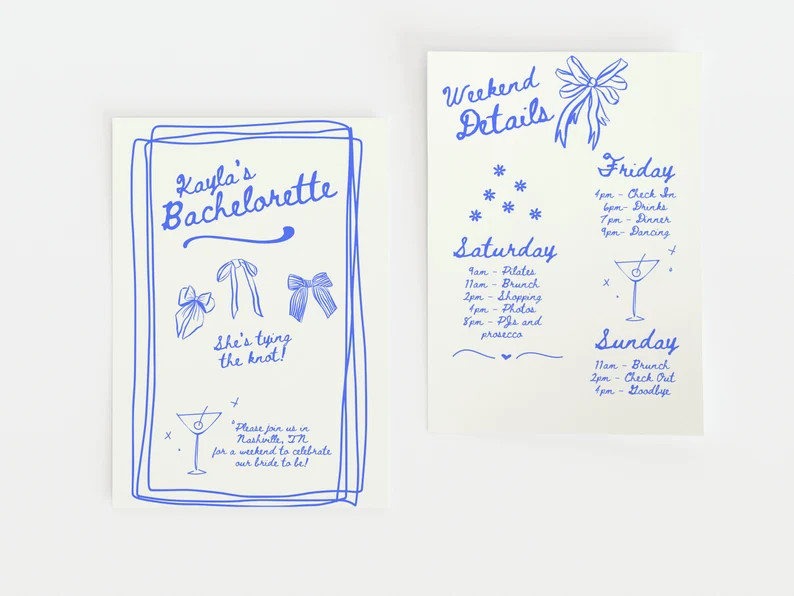 Kayla's
Bachelorette
She's tying
the knot!
Please join us in
Nashville, TN
for a weekend to celebrate
our bride to be!
Weekend
Details
Friday
4pm - Check In
6pm- Drinks
7pm - Dinner
9pm- Dancing
Saturday
9am - Pilates
11am - Brunch
2pm - Shopping
4pm - Photos
8pm - PJs and
prosecco
Sunday
11am - Brunch
2pm - Check Out
4pm - Goodbye